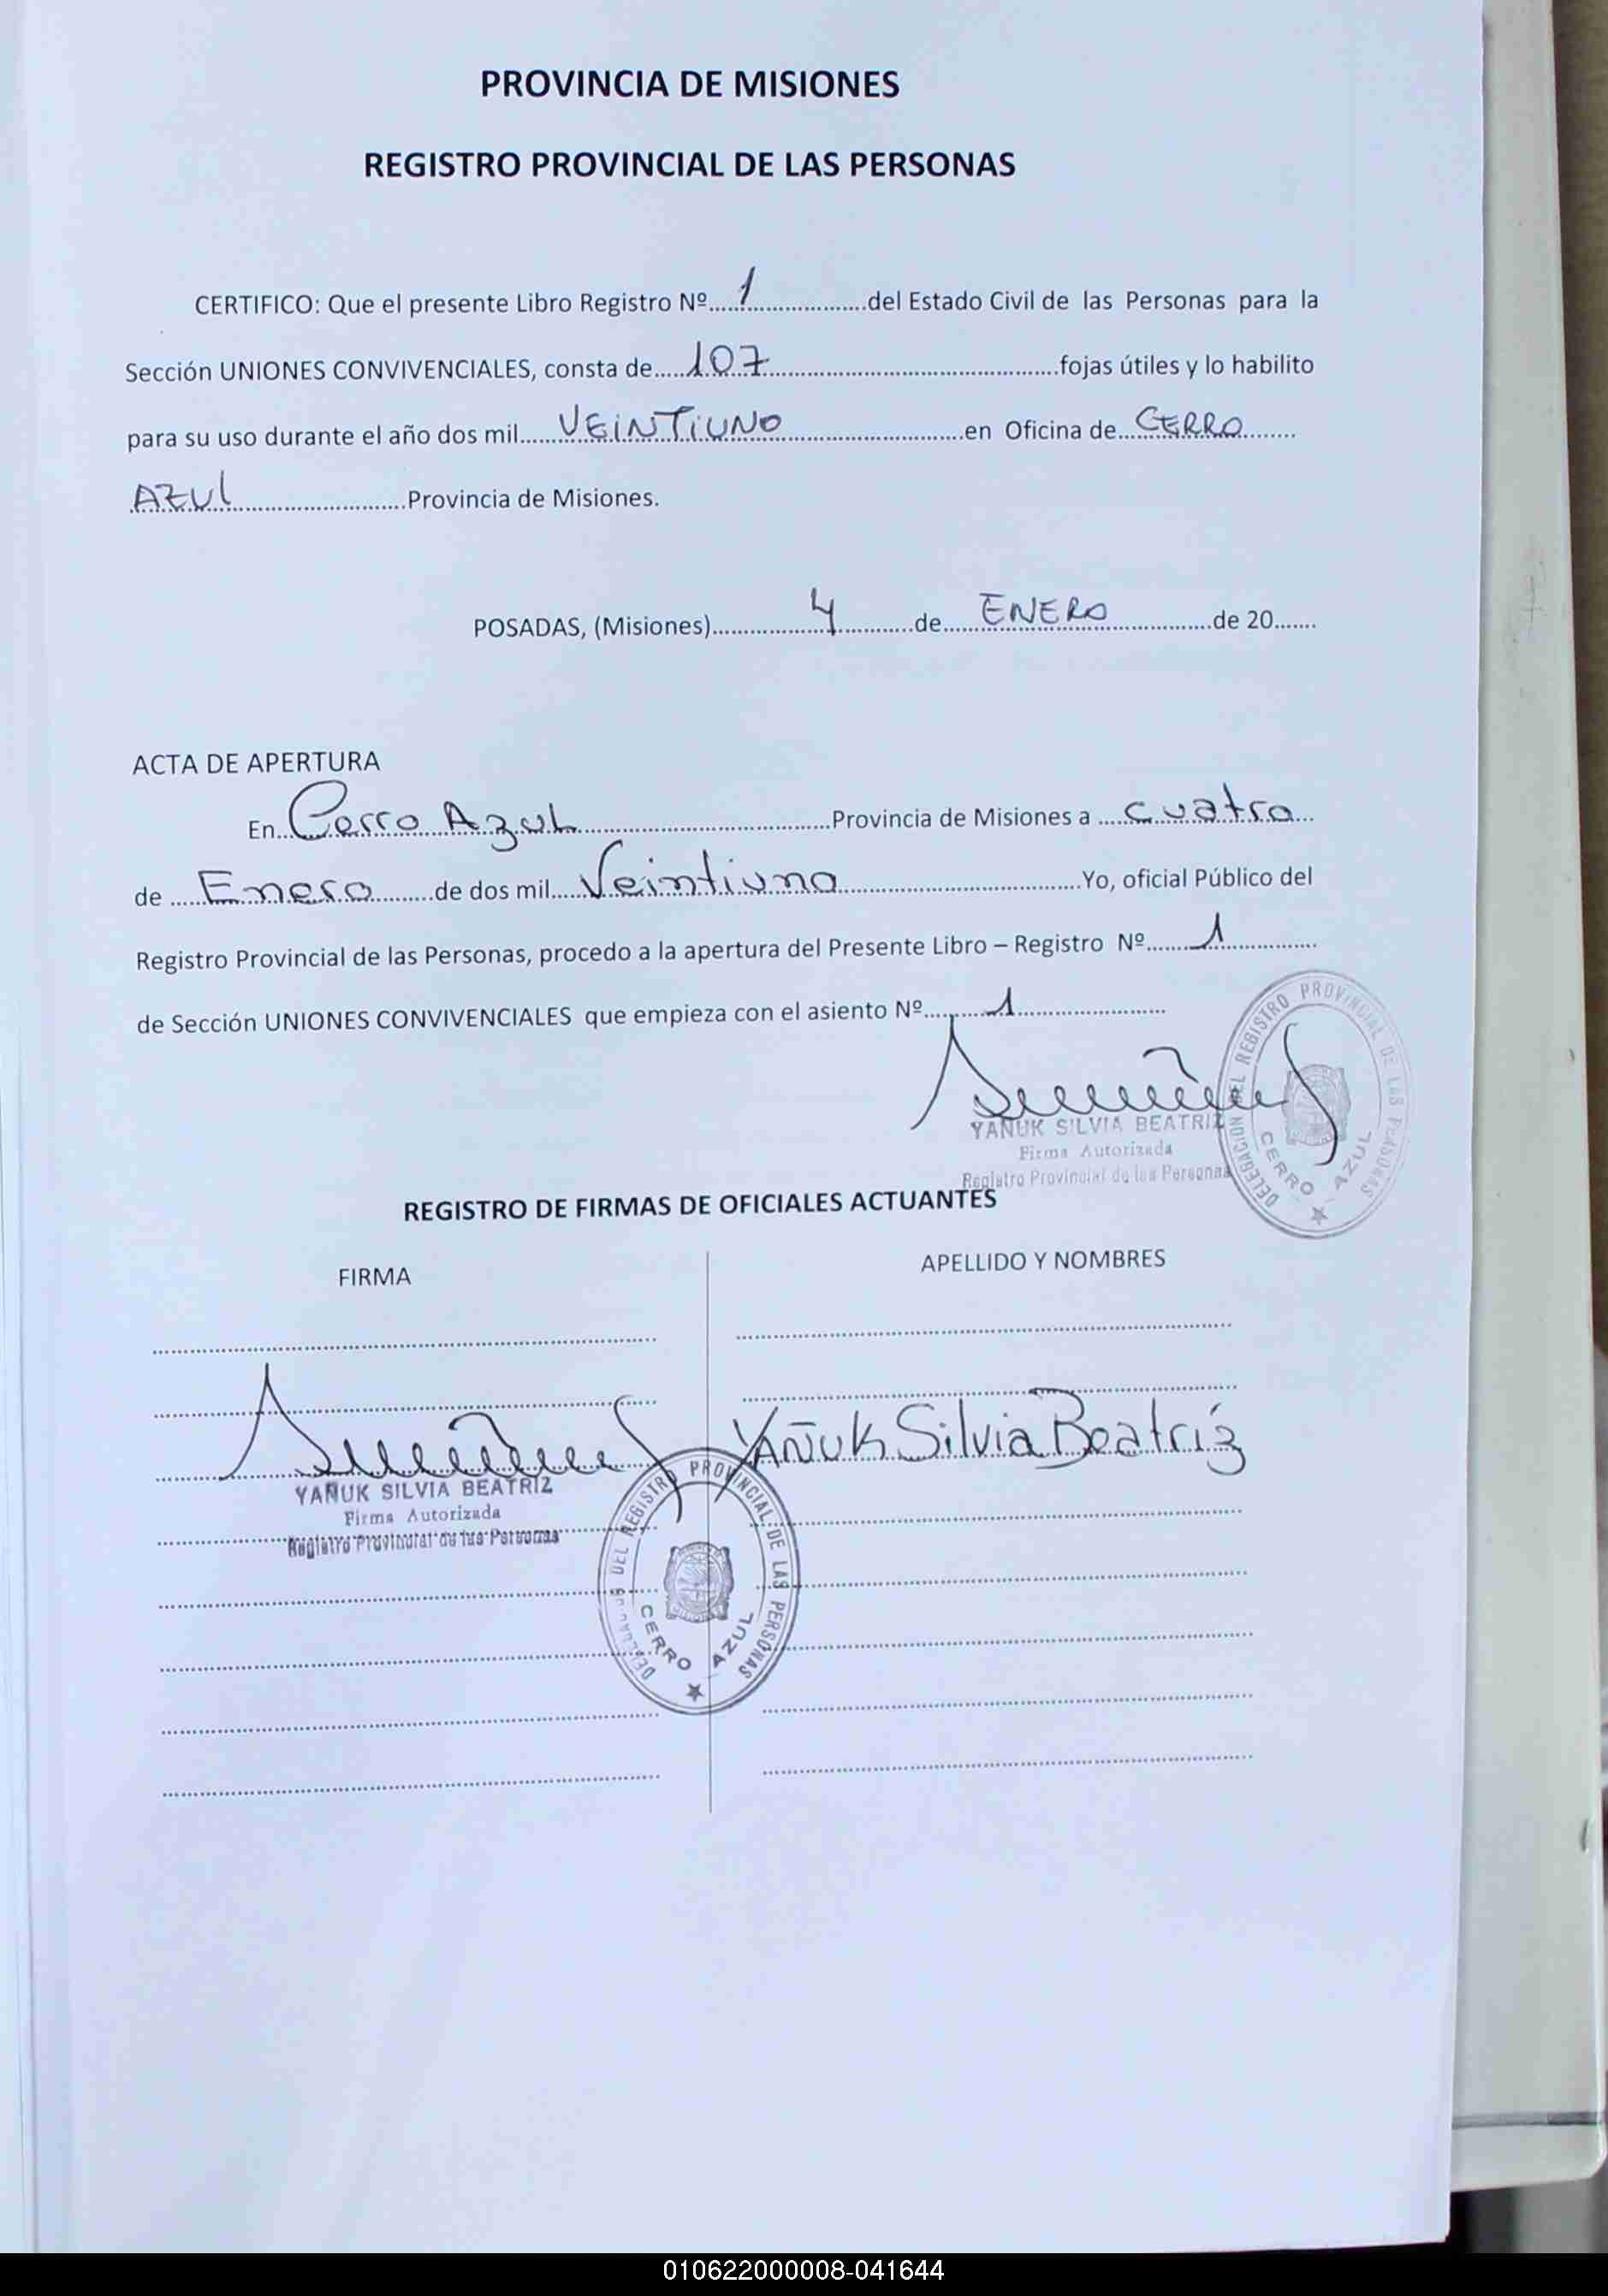 PROVINCIA DE MISIONES
REGISTRO PROVINCIAL DE LAS PERSONAS
CERTIFICO: Que el presente Libro Registro Nº....1....del Estado Civil de las Personas para la
Sección UNIONES CONVIVENCIALES, consta de....107....fojas útiles y lo habilito
para su uso durante el año dos mil....VEINTIUNO....en Oficina de....CERRO....
AZUL....Provincia de Misiones.
POSADAS, (Misiones)....4....de....ENERO....de 20.......
ACTA DE APERTURA
En....Cerro Azul....Provincia de Misiones a ....cuatro....
de ....Enero....de dos mil....Veintiuno....Yo, oficial Público del
Registro Provincial de las Personas, procedo a la apertura del Presente Libro – Registro Nº....1....
de Sección UNIONES CONVIVENCIALES que empieza con el asiento Nº....1....
YAÑUK SILVIA BEATRIZ
Firma Autorizada
Registro Provincial de las Personas
DELEGACION DEL REGISTRO PROVINCIAL DE LAS PERSONAS
CERRO AZUL
REGISTRO DE FIRMAS DE OFICIALES ACTUANTES
FIRMA
APELLIDO Y NOMBRES
YAÑUK Silvia Beatriz
YAÑUK SILVIA BEATRIZ
Firma Autorizada
Registro Provincial de las Personas
DELEGACION DEL REGISTRO PROVINCIAL DE LAS PERSONAS
CERRO AZUL
010622000008-041644